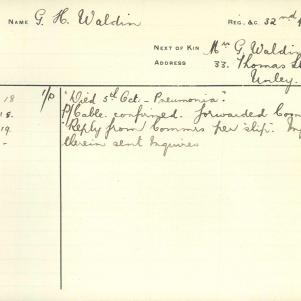 NAME G. H. Waldin REG. &C. 32nd
NEXT OF KIN Mrs G. Waldin
ADDRESS 33. Thomas St
Unley.
18 I/P "Died 5th Oct. - Pneumonia".
18. P/Cable. confirmed. forwarded
19 Reply from Commrs per slip.
- therein sent Inquires